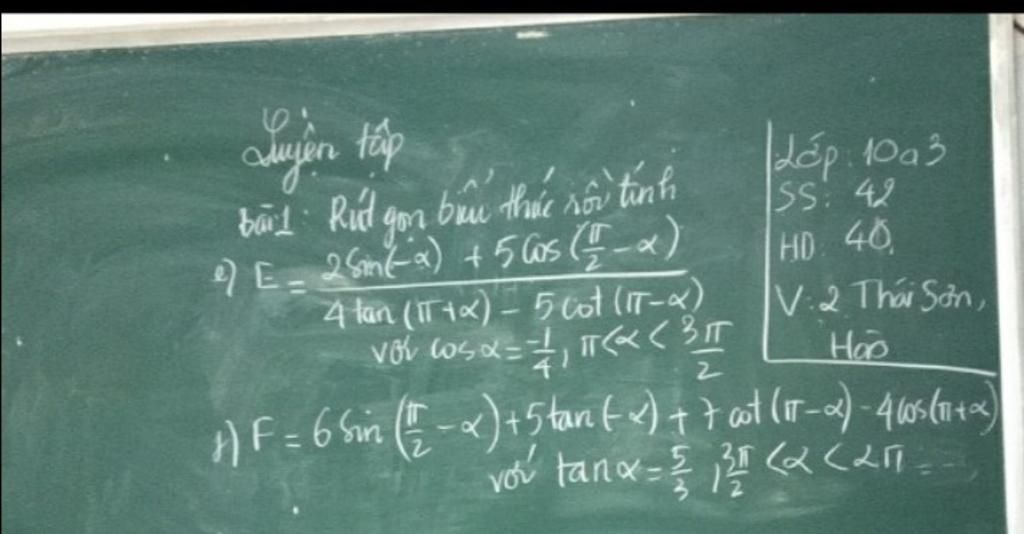 Luyện tập
bài 1: Rút gọn biểu thức rồi tính
e) E = \frac{2 sin(-α) + 5 cos(\frac{π}{2} - α)}{4 tan(π+α) - 5 cot(π-α)}
với cos α = \frac{-1}{4}, π < α < \frac{3π}{2}
f) F = 6 sin(\frac{π}{2} - α) + 5 tan(-α) + 7 cot(π-α) - 4 cos(π+α)
với tan α = \frac{5}{3}, \frac{3π}{2} < α < 2π
Lớp: 10a3
SS: 42
HD 40
V: 2 Thái Sơn,
Hào